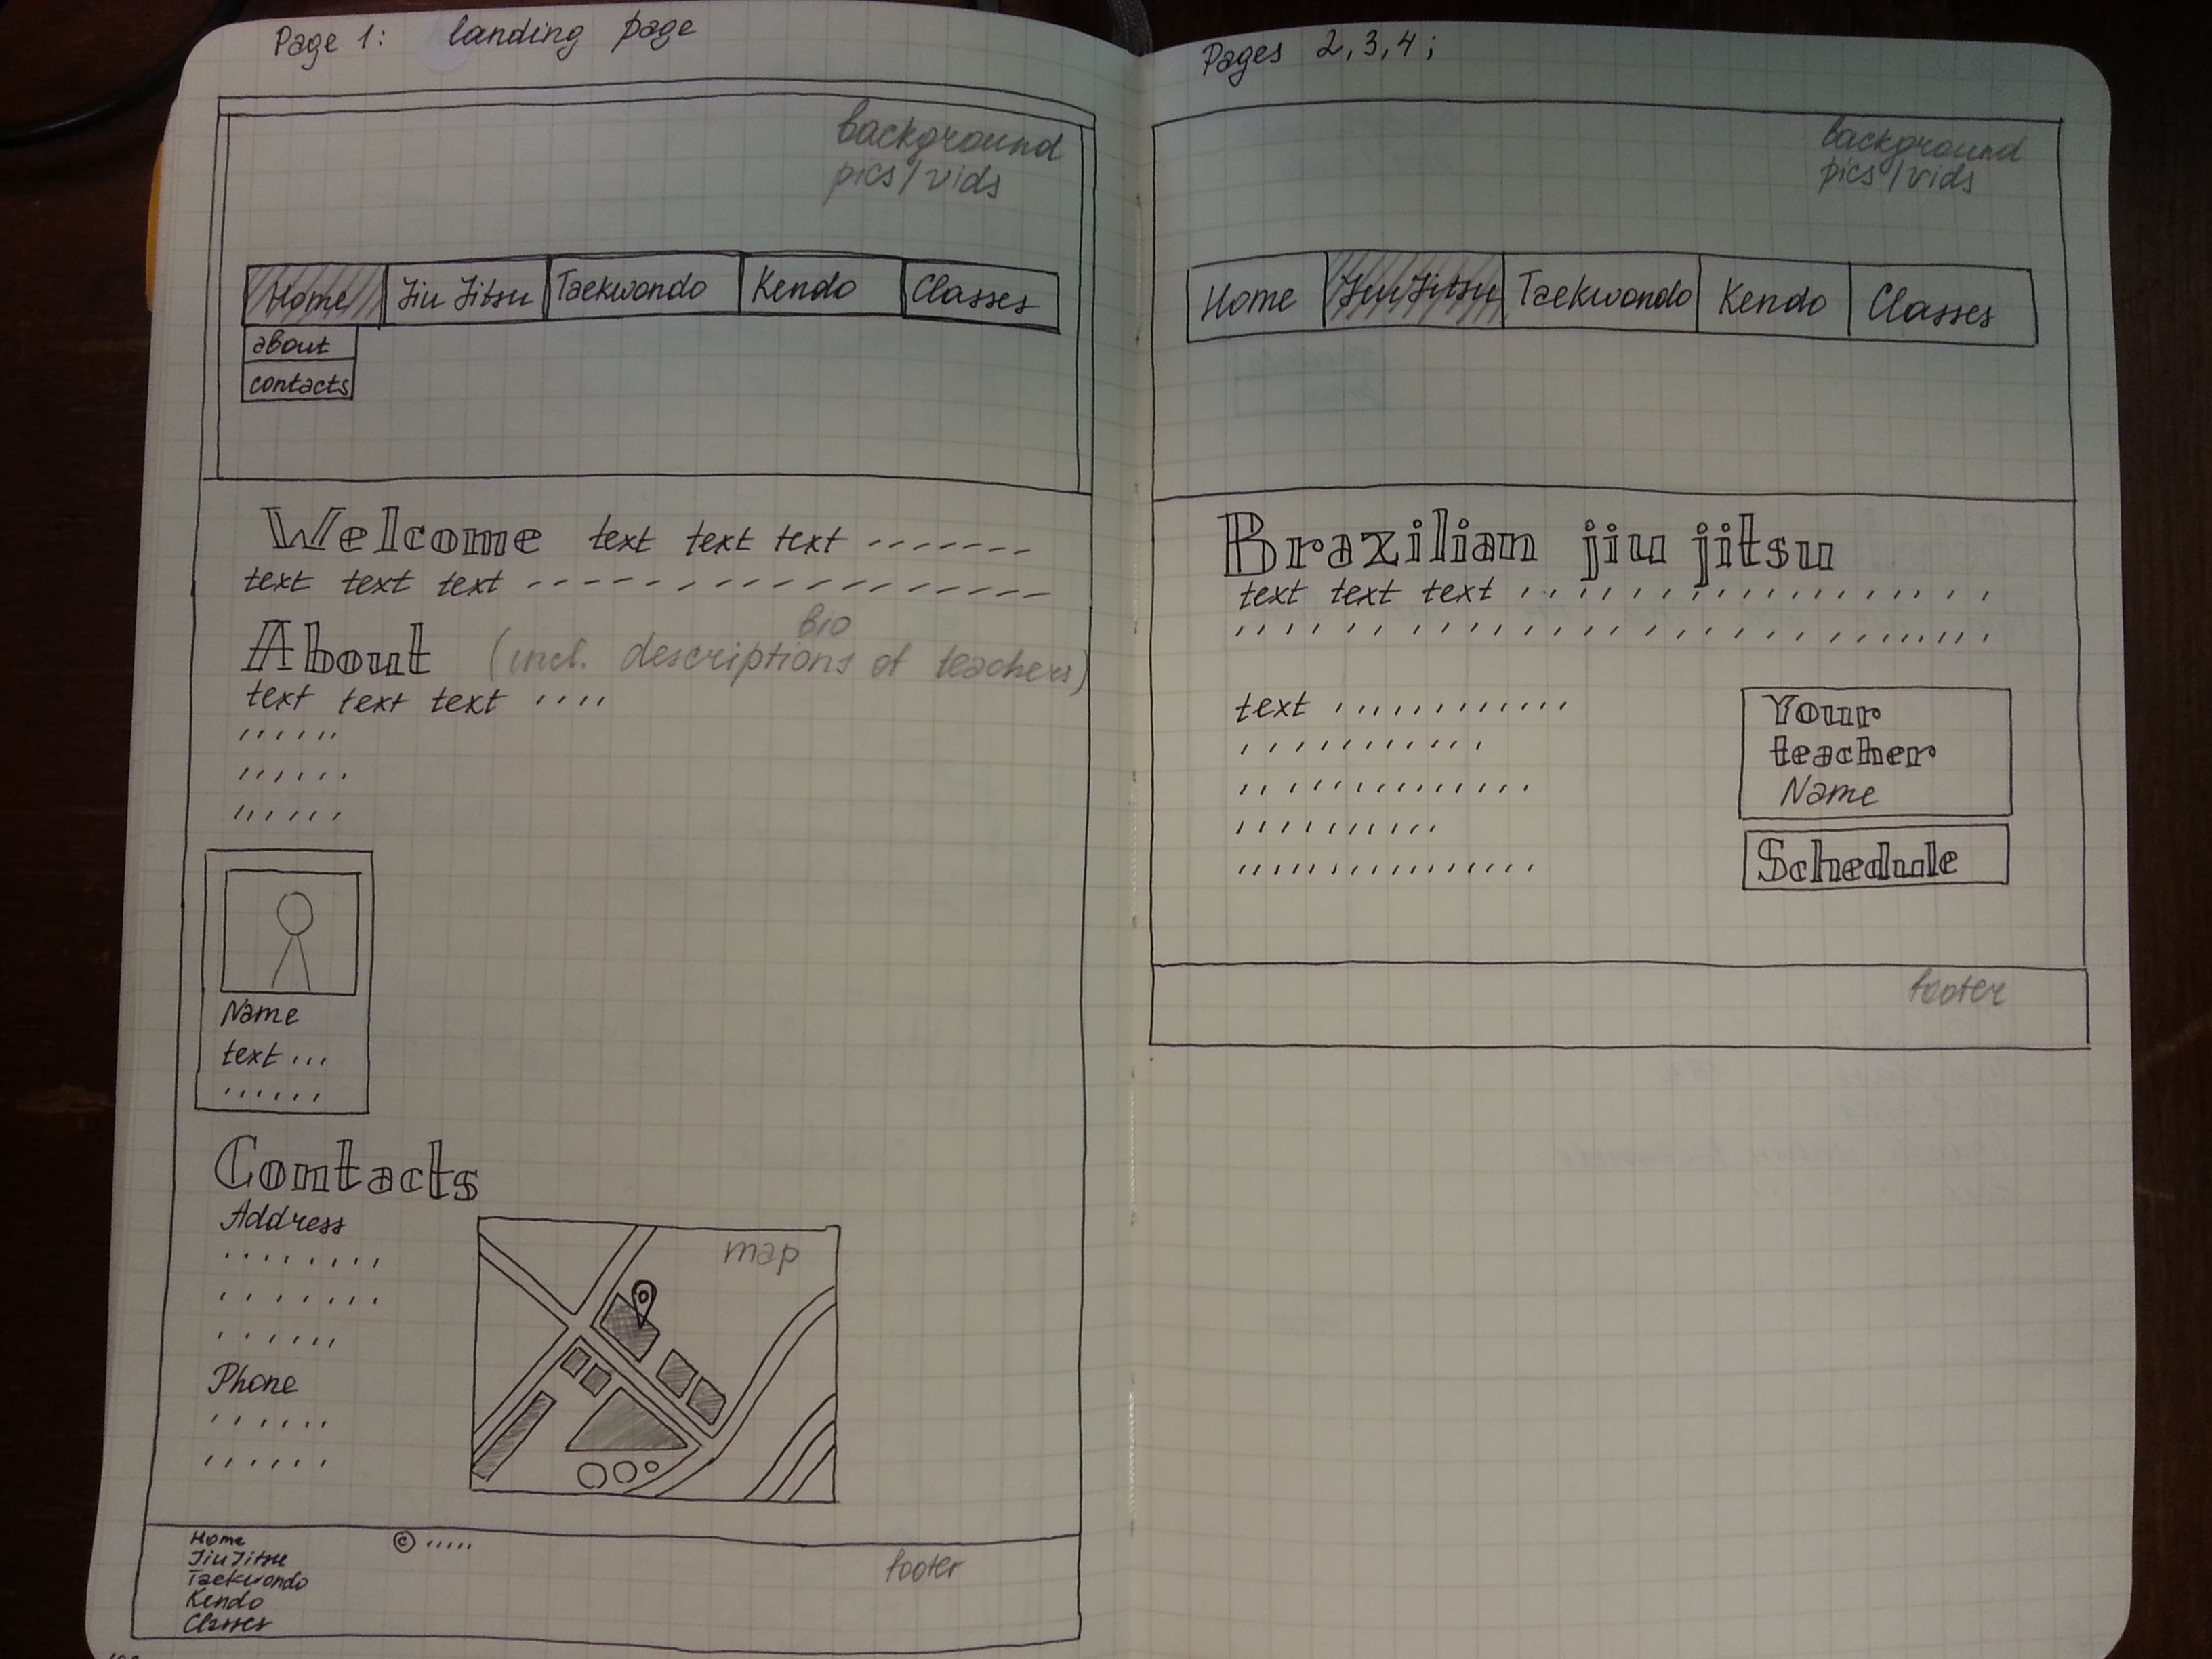 Page 1: landing page
background
pics/vids
Home Jiu Jitsu Taekwondo Kendo Classes
about
contacts
Welcome text text text -----
text text text --------------
About (incl. descriptions of teachers)
bio
text text text ....
Name
text...
Contacts
Address
Phone
map
Home
Jiu Jitsu
Taekwondo
Kendo
Classes
© .....
footer
Pages 2,3,4:
background
pics/vids
Home Jiu Jitsu Taekwondo Kendo Classes
Brazilian jiu jitsu
text text text ..............
text ...........
Your
teacher
Name
Schedule
footer